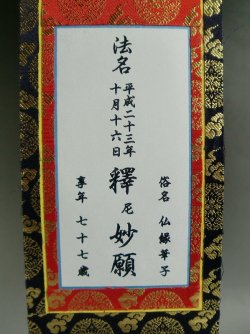 俗名 仏縁華子
法名 釋尼妙願
平成二十三年
十月十六日
享年 七十七歳